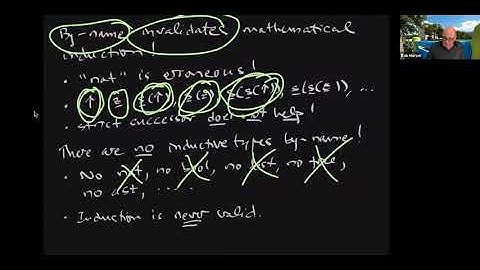 By-name invalidates mathematical
induction!
• "nat" is erroneous!
• ↑, z, s(↑), s(z), s(s(↑)), s(s(z)), ...
• strict successor does not help!
There are no inductive types by-name!
• No nat, no bool, no list, no tree,
no ast, ....
• Induction is never valid.